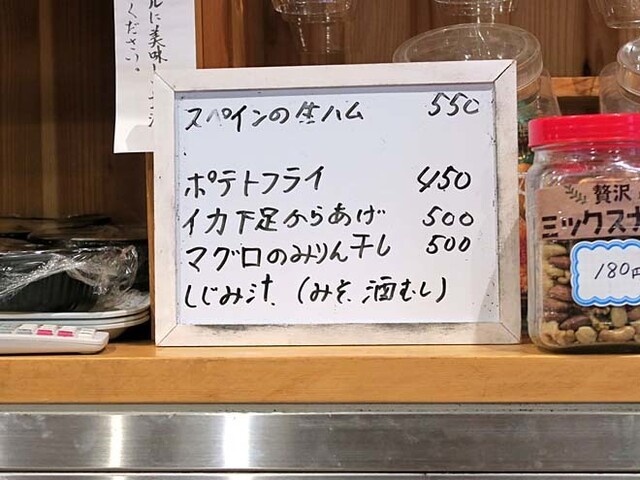 ルに美味し
ください。
スペインの生ハム 550
ポテトフライ 450
イカ下足からあげ 500
マグロのみりん干し 500
しじみ汁 (みそ、酒むし)
贅沢
ミックス
180円